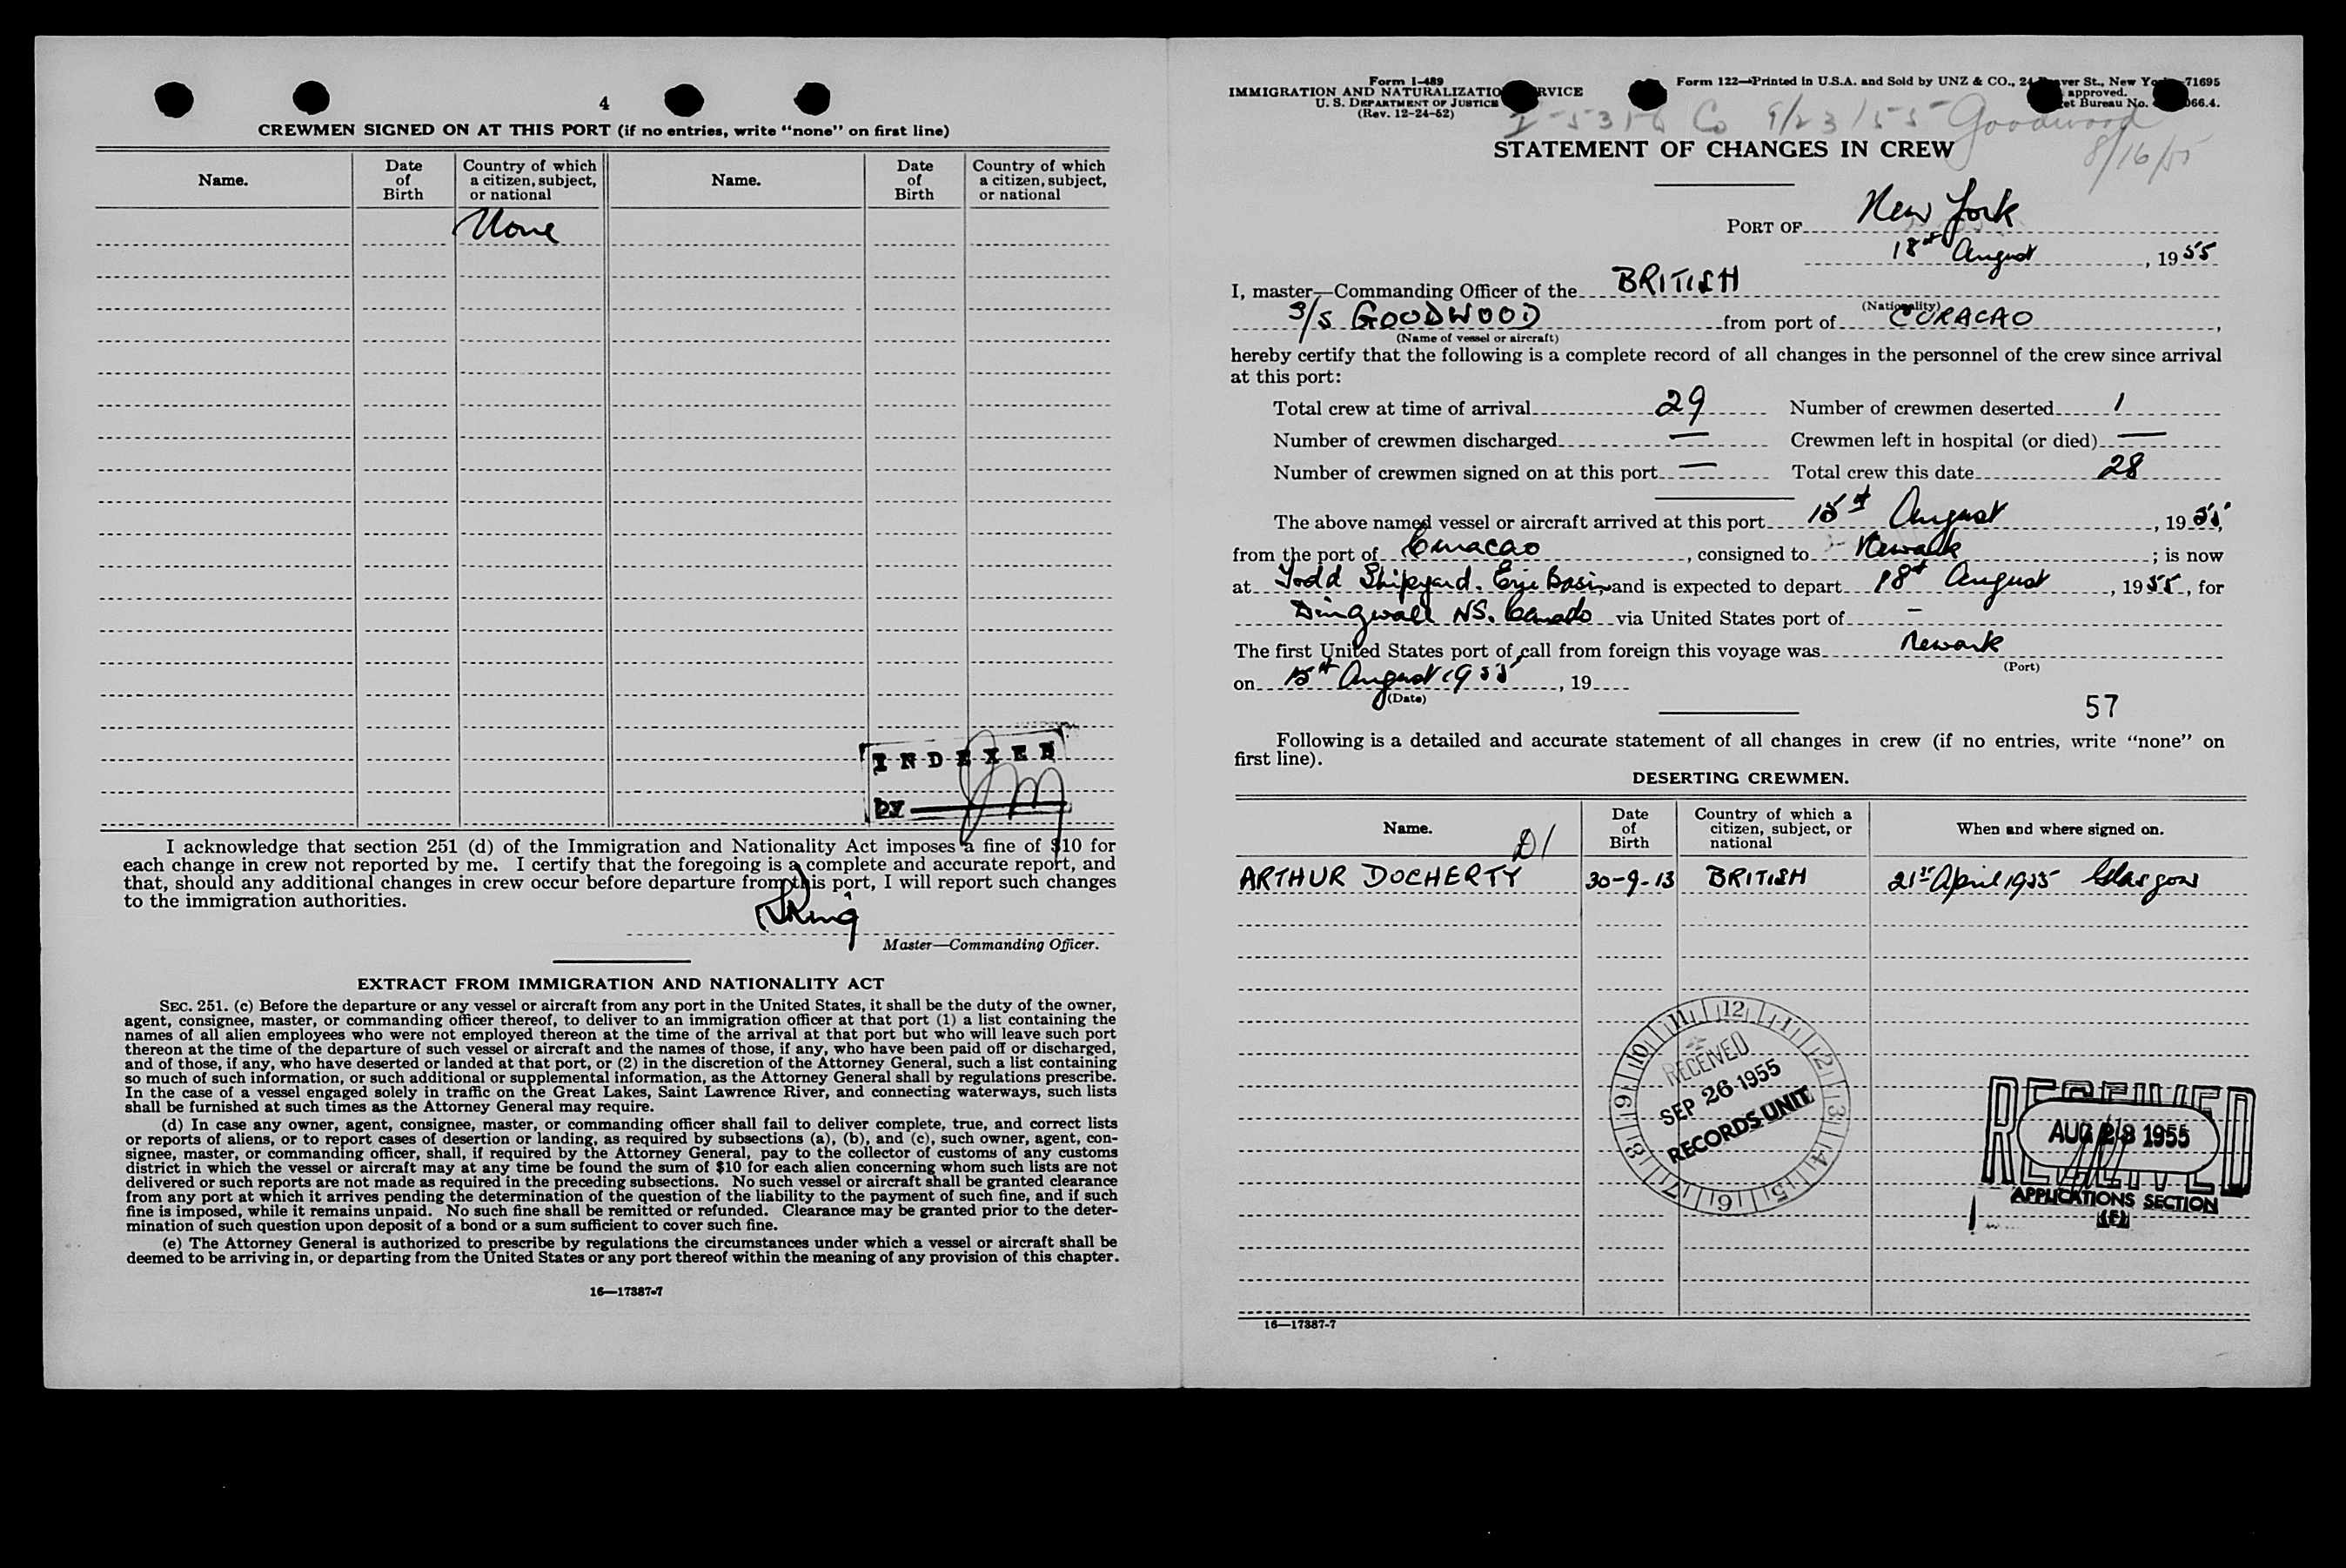 4
CREWMEN SIGNED ON AT THIS PORT (if no entries, write "none" on first line)
Name. Date of Birth Country of which a citizen, subject, or national Name. Date of Birth Country of which a citizen, subject, or national
None
INDEXED
BY
I acknowledge that section 251 (d) of the Immigration and Nationality Act imposes a fine of $10 for
each change in crew not reported by me. I certify that the foregoing is a complete and accurate report, and
that, should any additional changes in crew occur before departure from this port, I will report such changes
to the immigration authorities.
King
Master—Commanding Officer.
EXTRACT FROM IMMIGRATION AND NATIONALITY ACT
SEC. 251. (c) Before the departure or any vessel or aircraft from any port in the United States, it shall be the duty of the owner,
agent, consignee, master, or commanding officer thereof, to deliver to an immigration officer at that port (1) a list containing the
names of all alien employees who were not employed thereon at the time of the arrival at that port but who will leave such port
thereon at the time of the departure of such vessel or aircraft and the names of those, if any, who have been paid off or discharged,
and of those, if any, who have deserted or landed at that port, or (2) in the discretion of the Attorney General, such a list containing
so much of such information, or such additional or supplemental information, as the Attorney General shall by regulations prescribe.
In the case of a vessel engaged solely in traffic on the Great Lakes, Saint Lawrence River, and connecting waterways, such lists
shall be furnished at such times as the Attorney General may require.
(d) In case any owner, agent, consignee, master, or commanding officer shall fail to deliver complete, true, and correct lists
or reports of aliens, or to report cases of desertion or landing, as required by subsections (a), (b), and (c), such owner, agent, con-
signee, master, or commanding officer, shall, if required by the Attorney General, pay to the collector of customs of any customs
district in which the vessel or aircraft may at any time be found the sum of $10 for each alien concerning whom such lists are not
delivered or such reports are not made as required in the preceding subsections. No such vessel or aircraft shall be granted clearance
from any port at which it arrives pending the determination of the question of the liability to the payment of such fine, and if such
fine is imposed, while it remains unpaid. No such fine shall be remitted or refunded. Clearance may be granted prior to the deter-
mination of such question upon deposit of a bond or a sum sufficient to cover such fine.
(e) The Attorney General is authorized to prescribe by regulations the circumstances under which a vessel or aircraft shall be
deemed to be arriving in, or departing from the United States or any port thereof within the meaning of any provision of this chapter.
16—17387-7
Form I-489
IMMIGRATION AND NATURALIZATIO RVICE
U. S. DEPARTMENT OF JUSTICE
(Rev. 12-24-52)
Form 122—Printed in U.S.A. and Sold by UNZ & CO., 24 ver St., New Yo 71695
approved.
et Bureau No. 066.4.
Co 9/23/55 Goodwood
8/16/55
STATEMENT OF CHANGES IN CREW
PORT OF New York
18th August, 1955
I, master—Commanding Officer of the BRITISH
(Nationality)
S/S GOODWOOD from port of CURACAO,
(Name of vessel or aircraft)
hereby certify that the following is a complete record of all changes in the personnel of the crew since arrival
at this port:
Total crew at time of arrival 29 Number of crewmen deserted 1
Number of crewmen discharged — Crewmen left in hospital (or died) —
Number of crewmen signed on at this port — Total crew this date 28
The above named vessel or aircraft arrived at this port 15th August, 1955,
from the port of Curacao, consigned to Newark; is now
at Todd Shipyard. Erie Basin, and is expected to depart 18th August, 1955, for
Dingwall NS. Canada via United States port of —
The first United States port of call from foreign this voyage was Newark
(Port)
on 15th August 1955, 19
(Date)
57
Following is a detailed and accurate statement of all changes in crew (if no entries, write "none" on
first line).
DESERTING CREWMEN.
Name. Date of Birth Country of which a citizen, subject, or national When and where signed on.
D1
ARTHUR DOCHERTY 30-9-13 BRITISH 21st April 1955 Glasgow
12 1 2 3 4 5 6 7 8 9 10 11
RECEIVED
SEP 26 1955
RECORDS UNIT
RECEIVED
AUG 23 1955
APPLICATIONS SECTION
16—17387-7